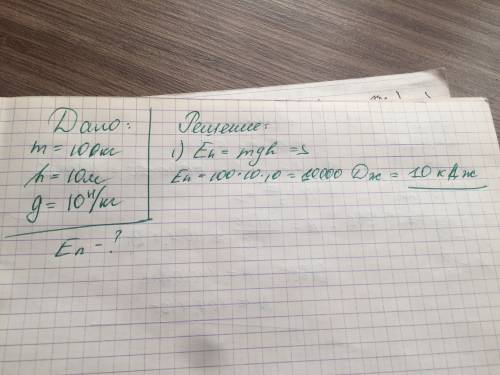 Дано:
m = 100кг
h = 10м
g = 10 н/кг
Еп - ?
Решение:
1) Еп = mgh =>
Еп = 100·10·10 = 10000 Дж = 10 кДж